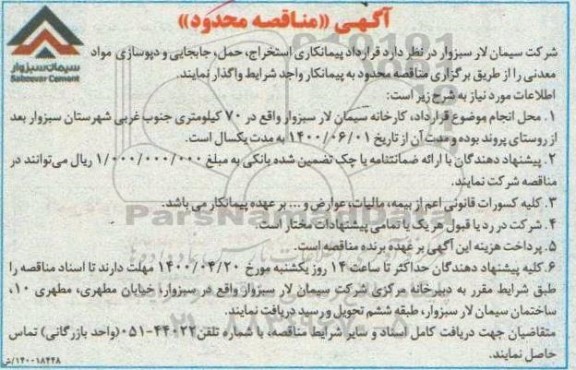 آگهی «مناقصه محدود»
سیمان سبزوار
Sabzevar Cement
شرکت سیمان لار سبزوار در نظر دارد قرارداد پیمانکاری استخراج، حمل، جابجایی و دپوسازی مواد
معدنی را از طریق برگزاری مناقصه محدود به پیمانکار واجد شرایط واگذار نمایند.
اطلاعات مورد نیاز به شرح زیر است:
۱. محل انجام موضوع قرارداد، کارخانه سیمان لار سبزوار واقع در ۷۰ کیلومتری جنوب غربی شهرستان سبزوار بعد
از روستای پروند بوده ومدت آن از تاریخ ۱۴۰۰/۰۶/۰۱ به مدت یکسال است.
۲. پیشنهاد دهندگان با ارائه ضمانتنامه یا چک تضمین شده بانکی به مبلغ ۱/۰۰۰/۰۰۰/۰۰۰ ریال می‌توانند در
مناقصه شرکت نمایند.
۳. کلیه کسورات قانونی اعم از بیمه، مالیات، عوارض و ... بر عهده پیمانکار می باشد.
۴. شرکت در رد یا قبول هر یک یا تمامی پیشنهادات مختار است.
۵. پرداخت هزینه این آگهی بر عهده برنده مناقصه است.
۶. کلیه پیشنهاد دهندگان حداکثر تا ساعت ۱۴ روز یکشنبه مورخ ۱۴۰۰/۰۴/۲۰ مهلت دارند تا اسناد مناقصه را
طبق شرایط مقرر به دبیرخانه مرکزی شرکت سیمان لار سبزوار واقع در سبزوار، خیابان مطهری، مطهری ۱۰،
ساختمان سیمان لار سبزوار، طبقه ششم تحویل و رسید دریافت نمایند.
متقاضیان جهت دریافت کامل اسناد و سایر شرایط مناقصه، با شماره تلفن ۴۴۰۲۲-۰۵۱ (واحد بازرگانی) تماس
حاصل نمایند.
۱۴۰۰۱۸۴۴۸/ش
ParsNamadData